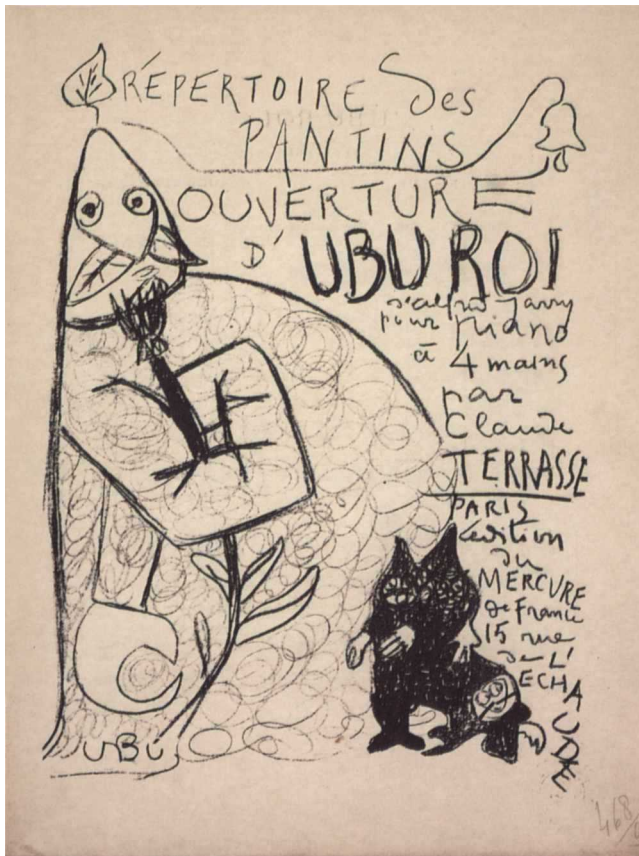 RÉPERTOIRE des
PANTINS
OUVERTURE
D'UBU ROI
d'alfred Jarry
pour piano
à 4 mains
par
Claude
TERRASSE
PARIS
édition
du
MERCURE
de France
15 rue
de L'
ECHAUDE
UBU
468